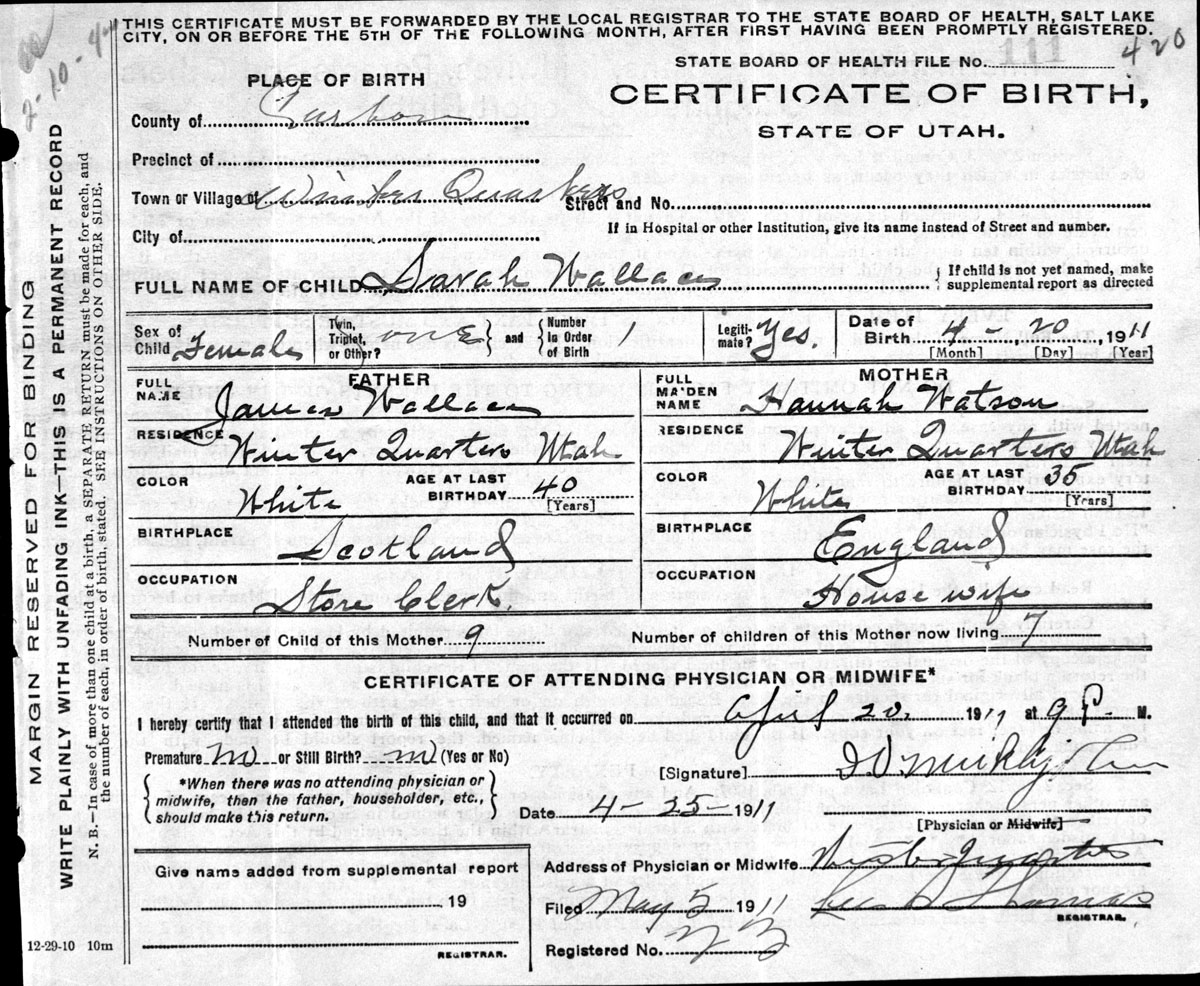 THIS CERTIFICATE MUST BE FORWARDED BY THE LOCAL REGISTRAR TO THE STATE BOARD OF HEALTH, SALT LAKE
CITY, ON OR BEFORE THE 5TH OF THE FOLLOWING MONTH, AFTER FIRST HAVING BEEN PROMPTLY REGISTERED.
STATE BOARD OF HEALTH FILE No. 111 420
PLACE OF BIRTH
CERTIFICATE OF BIRTH,
STATE OF UTAH.
County of Carbon
Precinct of
Town or Village of Winter Quarters Street and No.
City of
If in Hospital or other Institution, give its name instead of Street and number.
FULL NAME OF CHILD Sarah Wallace { If child is not yet named, make
supplemental report as directed
Sex of Child Female Twin, Triplet, or Other? one } and { Number in Order of Birth 1 Legitimate? Yes. Date of Birth 4 - 20, 1911
[Month] [Day] [Year]
FATHER MOTHER
FULL NAME James Wallace FULL MAIDEN NAME Hannah Watson
RESIDENCE Winter Quarters Utah RESIDENCE Winter Quarters Utah
COLOR White AGE AT LAST BIRTHDAY 40 [Years] COLOR White AGE AT LAST BIRTHDAY 35 [Years]
BIRTHPLACE Scotland BIRTHPLACE England
OCCUPATION Store Clerk. OCCUPATION Housewife
Number of Child of this Mother 9 Number of children of this Mother now living 7
CERTIFICATE OF ATTENDING PHYSICIAN OR MIDWIFE*
I hereby certify that I attended the birth of this child, and that it occurred on April 20, 1911 at 9 P. M.
Premature no or Still Birth? no (Yes or No)
[Signature]
{ *When there was no attending physician or
midwife, then the father, householder, etc.,
should make this return. }
Date 4 - 25 - 1911
[Physician or Midwife]
Give name added from supplemental report
19
REGISTRAR.
Address of Physician or Midwife Winter Quarters
Filed May 5 1911 Thomas
REGISTRAR.
Registered No.
12-29-10 10m
MARGIN RESERVED FOR BINDING
WRITE PLAINLY WITH UNFADING INK—THIS IS A PERMANENT RECORD
N. B.—In case of more than one child at a birth, a SEPARATE RETURN must be made for each, and
the number of each, in order of birth, stated. SEE INSTRUCTIONS ON OTHER SIDE.